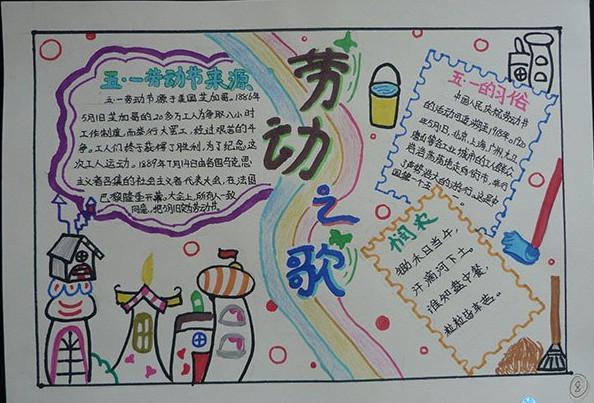 五·一劳动节来源
五·一劳动节源于美国芝加哥。1886年
5月1日芝加哥的20多万工人为争取八小时
工作制度,而举行大罢工,经过艰苦的斗
争。工人们终于获得了胜利,为了纪念这
次工人运动。1889年7月14日由各国马克思
主义者召集的社会主义者代表大会,在法国
巴黎隆重开幕。大会上,所有人一致
同意,把5月1日定为劳动节。
劳动之歌
五·一的习俗
中国人民庆祝劳动节
的活动可追溯至1918年。
年5月1日,北京,上海,广州,九江
唐山等各工业城市的工人群众
浩浩荡荡地走向街市,举行
了声势浩大的游行,这是中
国第一个五一
悯农
锄禾日当午,
汗滴禾下土。
谁知盘中餐,
粒粒皆辛苦。
8